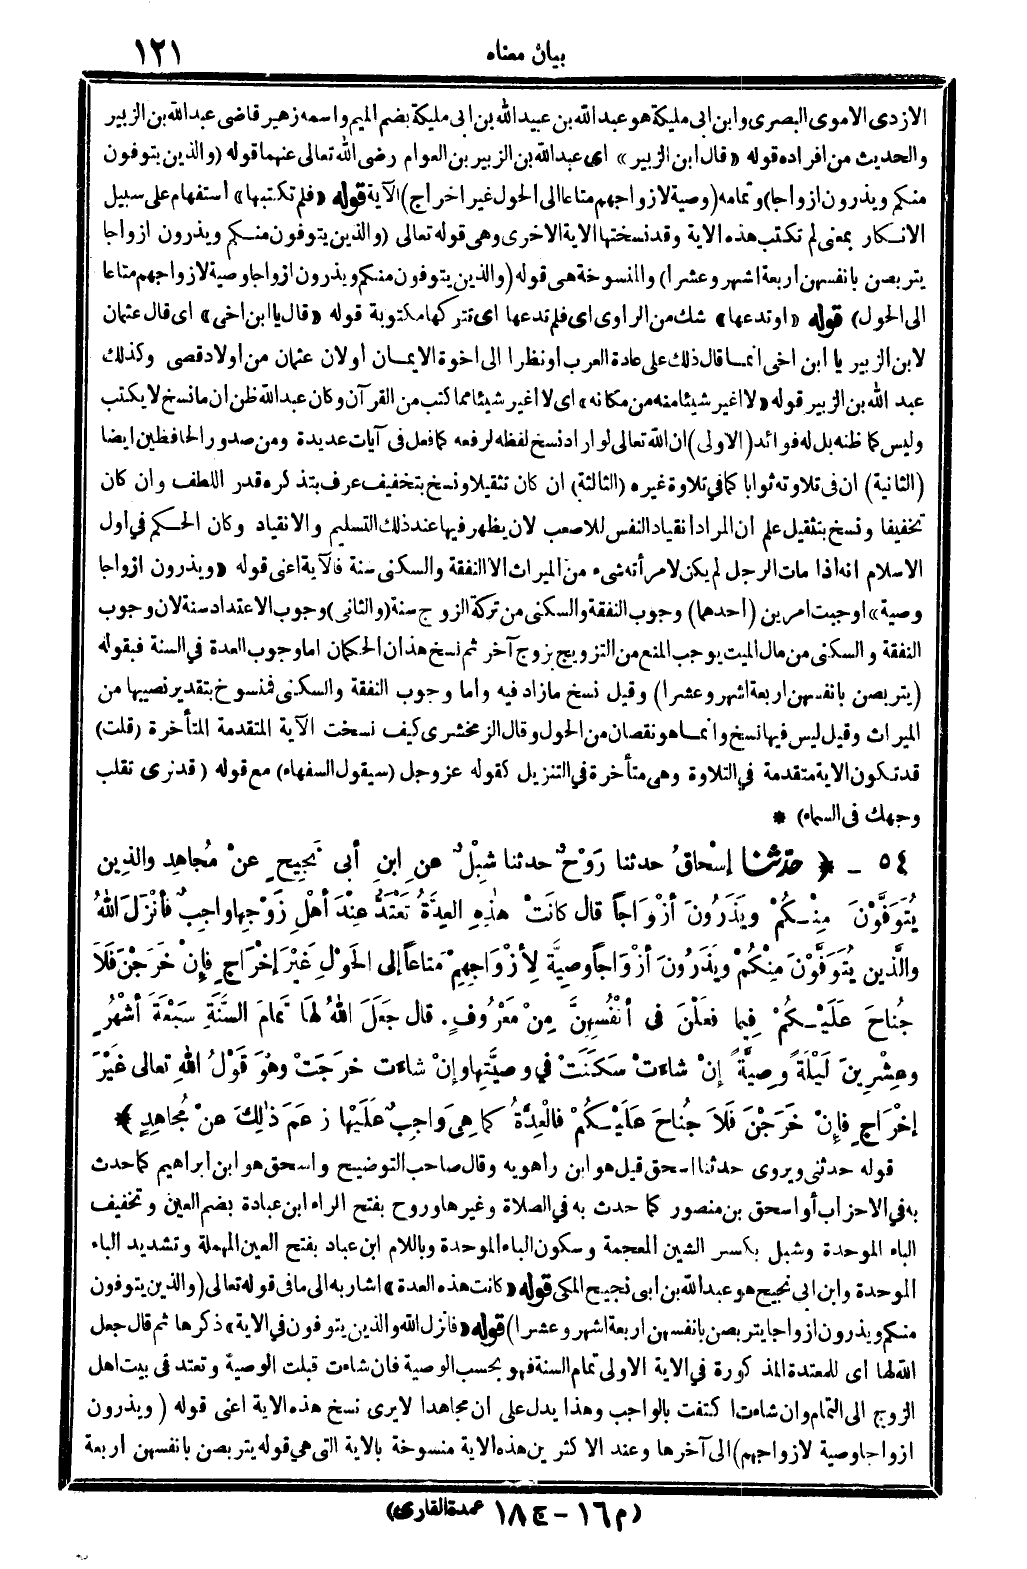 بيان معناه ١٢١
الازدى الاموى البصرى وابن ابى مليكة هو عبد الله بن عبيد الله بن ابى مليكة بضم الميم واسمه زهير قاضى عبد الله بن الزبير
والحديث من افراده قوله «قال ابن الزبير» اى عبد الله بن الزبير بن العوام رضى الله تعالى عنهما قوله (والذين يتوفون
منكم ويذرون ازواجا) وتمامه (وصية لازواجهم متاعا الى الحول غير اخراج) الآية قوله «فلم تكتبها» استفهام على سبيل
الانكار بمعنى لم تكتب هذه الاية وقد نسختها الاية الاخرى وهى قوله تعالى (والذين يتوفون منكم ويذرون ازواجا
يتربصن بانفسهن اربعة اشهر وعشرا) والمنسوخة هى قوله (والذين يتوفون منكم ويذرون ازواجا وصية لازواجهم متاعا
الى الحول) قوله «او تدعها» شك من الراوى اى فلم تدعها اى تتركها مكتوبة قوله «قال يا ابن اخى» اى قال عثمان
لابن الزبير يا ابن اخى انما قال ذلك على عادة العرب او نظرا الى اخوة الايمان او لان عثمان من اولاد قصى وكذلك
عبد الله بن الزبير قوله «لا اغير شيئا منه من مكانه» اى لا اغير شيئا مما كتب من القرآن وكان عبد الله ظن ان ما نسخ لا يكتب
وليس كما ظنه بل له فوائد (الاولى) ان الله تعالى لو اراد نسخ لفظه لرفعه كما فعل فى آيات عديدة ومن صدور الحافظين ايضا
(الثانية) ان فى تلاوته ثوابا كما في تلاوة غيره (الثالثة) ان كان تثقيلا ونسخ بتخفيف عرف بتذكره قدر اللطف وان كان
تخفيفا ونسخ بتثقيل علم ان المراد انقياد النفس للاصعب لان يظهر فيها عند ذلك التسليم والانقياد وكان الحكم في اول
الاسلام انه اذا مات الرجل لم يكن لامرأته شىء من الميراث الا النفقة والسكنى سنة فالآية اعنى قوله «ويذرون ازواجا
وصية» اوجبت امرين (احدهما) وجوب النفقة والسكنى من تركة الزوج سنة (والثانى) وجوب الاعتداد سنة لان وجوب
النفقة والسكنى من مال الميت يوجب المنع من التزويج بزوج آخر ثم نسخ هذان الحكمان اما وجوب العدة في السنة فبقوله
(يتربصن بانفسهن اربعة اشهر وعشرا) وقيل نسخ مازاد فيه واما وجوب النفقة والسكنى فمنسوخ بتقدير نصيبها من
الميراث وقيل ليس فيها نسخ وانما هو نقصان من الحول وقال الزمخشرى كيف نسخت الآية المتقدمة المتأخرة (قلت)
قد تكون الاية متقدمة في التلاوة وهى متأخرة في التنزيل كقوله عز وجل (سيقول السفهاء) مع قوله (قد نرى تقلب
وجهك فى السماء) *
٥٤ - ﴿ حدثنا إسْحاقُ حدثنا رَوْحٌ حدثنا شِبْلٌ عنِ ابنِ أبى نَجِيحٍ عنْ مُجاهِدٍ والذِين
يُتَوَفَّوْنَ مِنْكُمْ ويَذَرُونَ أزْوَاجاً قال كانَتْ هٰذِهِ العِدَّةُ تَعْتَدُّ عِنْدَ أهْلِ زَوْجِها واجِبٌ فأنْزَلَ اللهُ
والَّذِين يُتَوَفَّوْنَ مِنْكُمْ ويَذَرُونَ أزْوَاجاً وصِيَّةً لِأزْوَاجِهِمْ مَتاعاً إلى الحَوْلِ غَيْرَ إخْرَاجٍ فإنْ خَرَجْنَ فَلَا
جُناحَ عَلَيْكُمْ فِيما فَعَلْنَ فى أنْفُسِهِنَّ مِنْ مَعْرُوفٍ. قال جَعَلَ اللهُ لهَا تَمامَ السَّنَةِ سَبْعَةَ أشْهُرٍ
وعِشْرِينَ لَيْلَةً وصِيَّةً إنْ شاءتْ سَكَنَتْ في وصِيَّتِها وإنْ شاءت خرَجَتْ وهْوَ قَوْلُ اللهِ تعالى غَيْرَ
إخْرَاجٍ فإنْ خَرَجْنَ فَلَا جُناحَ عَلَيْكُمْ فالعِدَّةُ كما هِىَ واجِبٌ عَلَيْها زعَمَ ذٰلِكَ عنْ مُجاهِدٍ ﴾
قوله حدثنى ويروى حدثنا اسحق قيل هو ابن راهويه وقال صاحب التوضيح واسحق هو ابن ابراهيم كما حدث
به في الاحزاب أو اسحق بن منصور كما حدث به في الصلاة وغيرها وروح بفتح الراء ابن عبادة بضم العين وتخفيف
الباء الموحدة وشبل بكسر الشين المعجمة وسكون الباء الموحدة وباللام ابن عباد بفتح العين المهملة وتشديد الباء
الموحدة وابن ابى نجيح هو عبد الله بن ابى نجيح المكى قوله «كانت هذه العدة» اشار به الى ما فى قوله تعالى (والذين يتوفون
منكم ويذرون ازواجا يتربصن بانفسهن اربعة اشهر وعشرا) قوله «فانزل الله والذين يتوفون في الاية» ذكرها ثم قال جعل
الله لها اى للمعتدة المذكورة في الاية الاولى تمام السنة فهو بحسب الوصية فان شاءت قبلت الوصية وتعتد فى بيت اهل
الزوج الى التمام وان شاءت اكتفت بالواجب وهذا يدل على ان مجاهدا لا يرى نسخ هذه الاية اعنى قوله (ويذرون
ازواجا وصية لازواجهم) الى آخرها وعند الاكثرين هذه الاية منسوخة بالاية التى هي قوله يتربصن بانفسهن اربعة
(م ١٦ - ج ١٨ عمدة القارى)